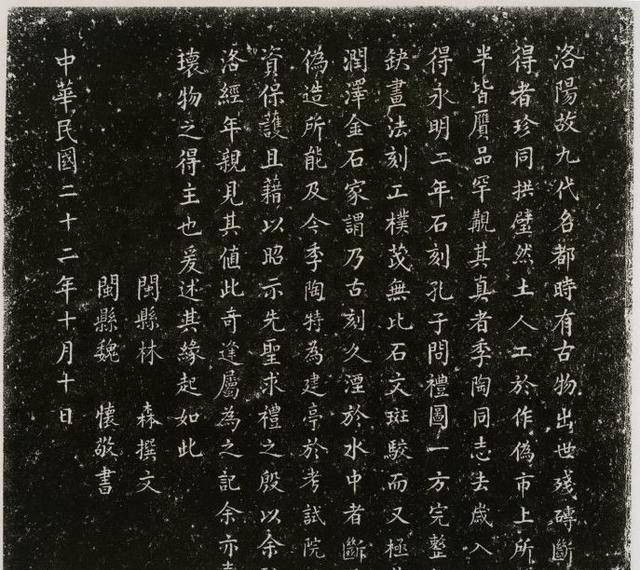 洛陽故九代名都時有古物出世殘磚斷
得者珍同拱璧然土人工於作偽市上所
半皆贗品罕覯其真者季陶同志去歲入
得永明二年石刻孔子問禮圖一方完整
缺畫法刻工樸茂無此石文斑駮而又極
潤澤金石家謂乃古刻久湮於水中者斷
偽造所能及今季陶特為建亭於考試院
資保護且藉以昭示先聖求禮之殷以余
洛經年親見其值此奇逢屬為之記余亦
瓌物之得主也爰述其緣起如此
閩縣林森撰文
閩縣魏懷敬書
中華民國二十二年十月十日